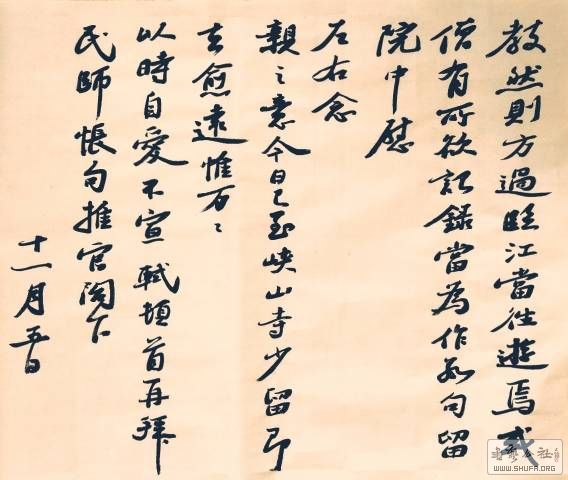 教然則方過臨江當往遊焉或
僧有所欲記錄當為作數句留
院中慰
左右念
親之意今日已至峽山寺少留即
去愈遠惟万〻
以時自愛不宣 軾頓首再拜
民師帳句推官閣下
十一月五日
WWW.SHUFA.ORG